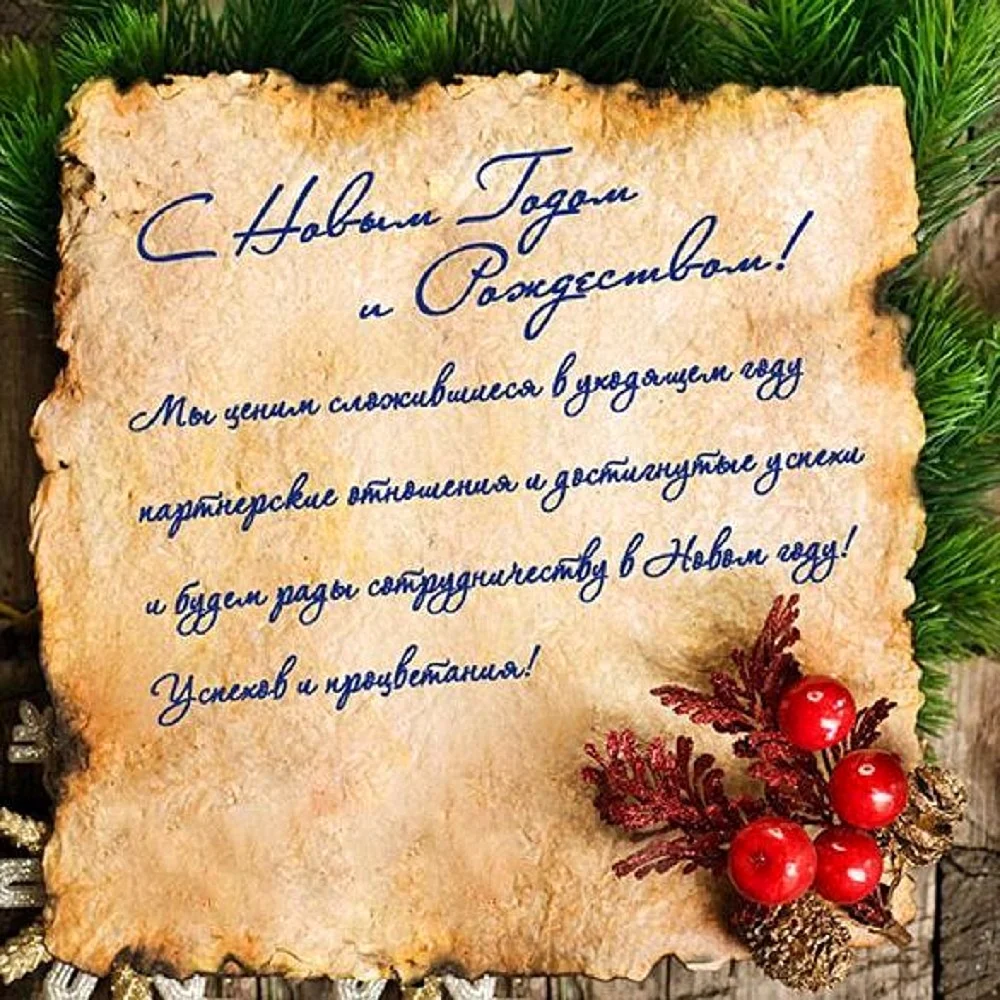 С Новым Годом
и Рождеством!
Мы ценим сложившиеся в уходящем году
партнерские отношения и достигнутые успехи
и будем рады сотрудничеству в Новом году!
Успехов и процветания!